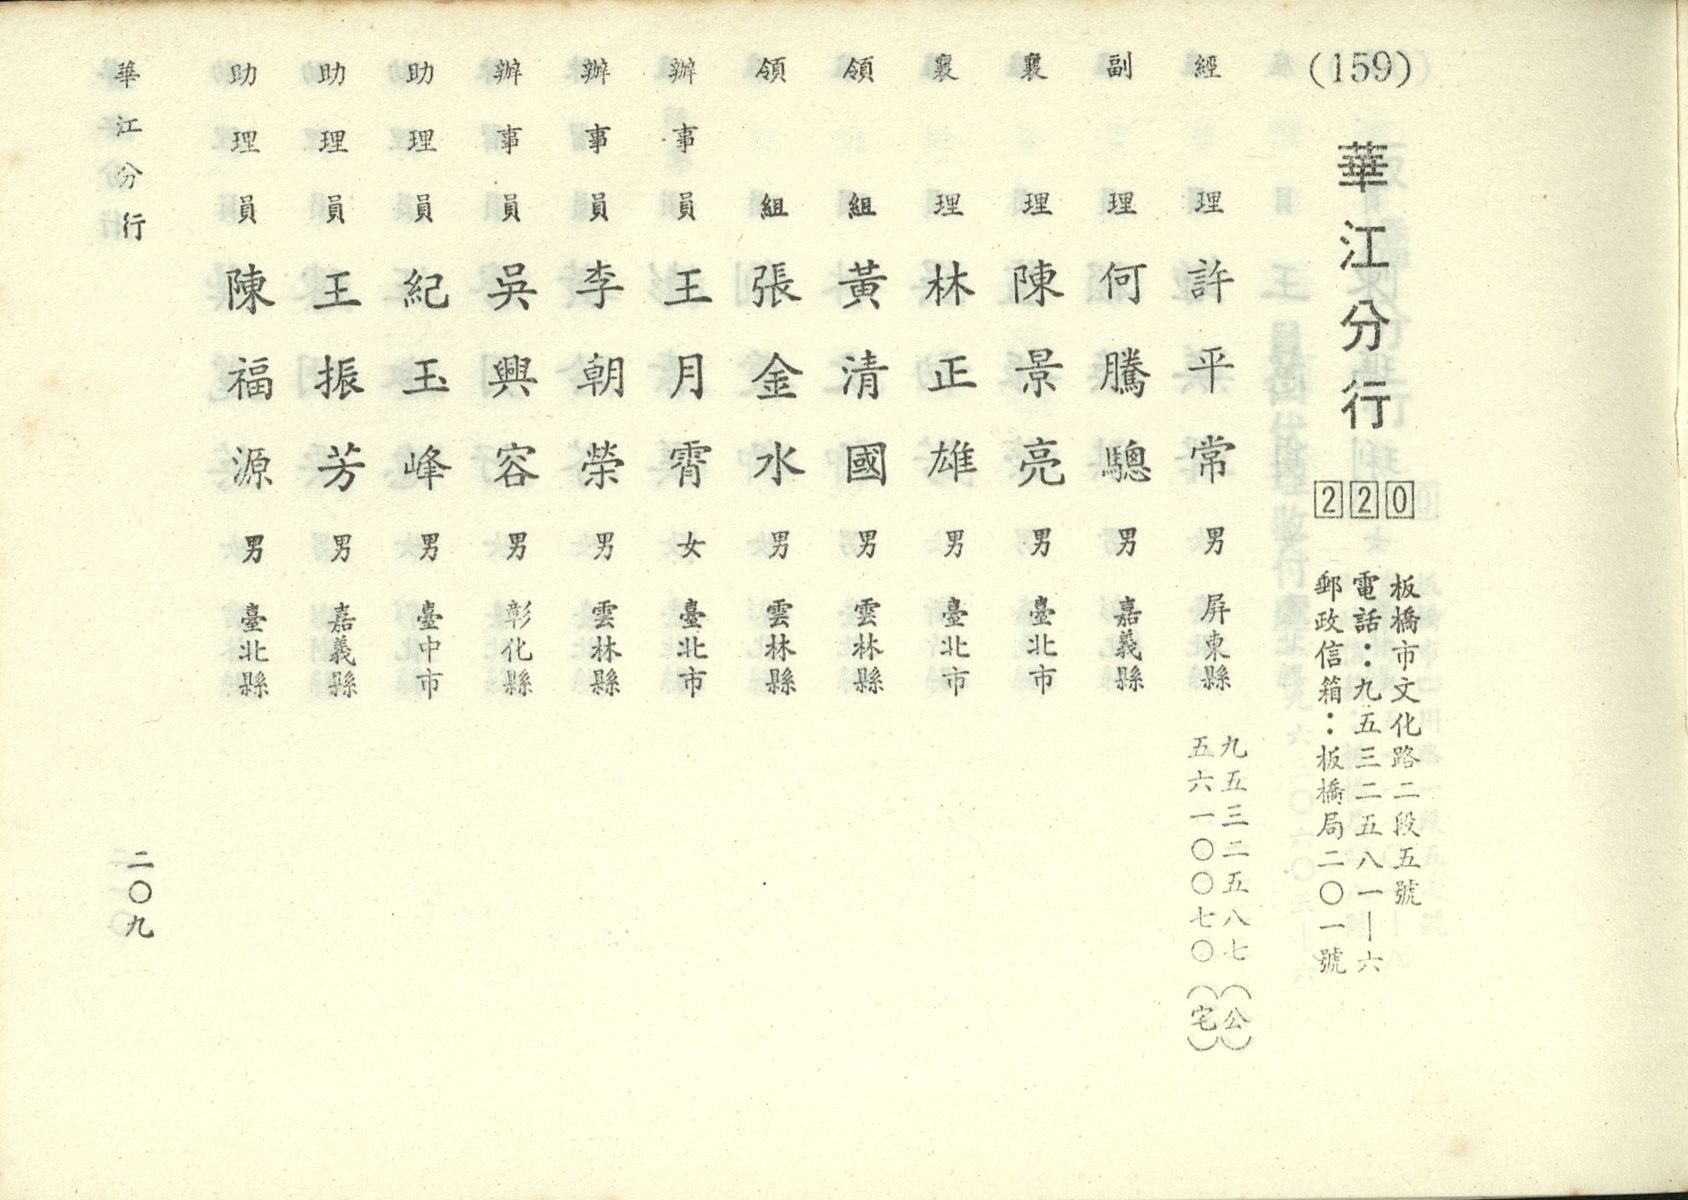 (159)
華江分行
220
板橋市文化路二段五號
電話：九五三二五八一—六
郵政信箱：板橋局二〇一號
經理 許平常 男 屏東縣 九五三二五八七（公）
五六一〇〇七〇（宅）
副理 何騰驄 男 嘉義縣
襄理 陳景亮 男 臺北市
襄理 林正雄 男 臺北市
領組 黃清國 男 雲林縣
領組 張金水 男 雲林縣
辦事員 王月霄 女 臺北市
辦事員 李朝榮 男 雲林縣
辦事員 吳興容 男 彰化縣
助理員 紀玉峰 男 臺中市
助理員 王振芳 男 嘉義縣
助理員 陳福源 男 臺北縣
華江分行
二〇九